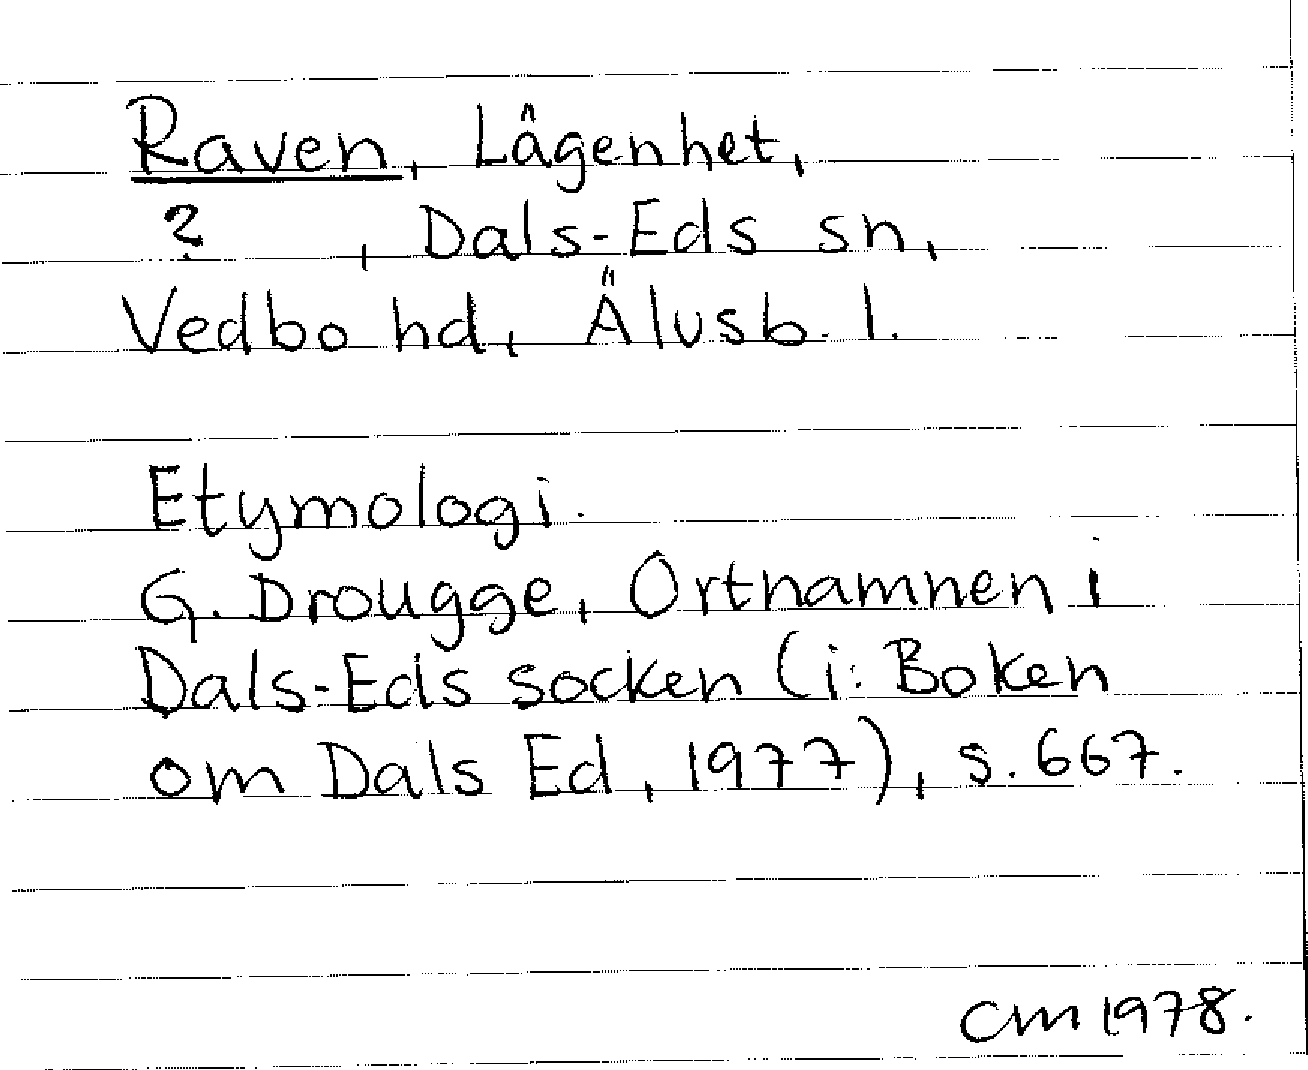 Raven, Lägenhet,
? , Dals-Eds sn,
Vedbo hd, Älvsb. l.
Etymologi.
G. Drougge, Ortnamnen i
Dals-Eds socken (i: Boken
om Dals Ed, 1977), s. 667.
CM 1978.